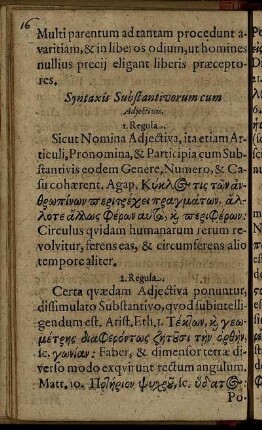 16
Multi parentum ad tantam procedunt a-
varitiam, & in liberos odium, ut homines
nullius precij eligant liberis præcepto-
res.
Syntaxis Substantivorum cum
Adjectivis.
1. Regula.
Sicut Nomina Adjectiva, ita etiam Ar-
ticuli, Pronomina, & Participia cum Sub-
stantivis eodem Genere, Numero, & Ca-
su cohærent. Agap. Κύκλος τις τῶν ἀν-
θρωπίνων περιτρέχει πραγμάτων, ἄλ-
λοτε ἄλλως φέρων αυτὰ, κ περιφέρων:
Circulus qvidam humanarum rerum re-
volvitur, ferens eas, & circumferens alio
tempore aliter.
2. Regula.
Certa qvædam Adjectiva ponuntur,
dissimulato Substantivo, qvod subintelli-
gendum est. Arist. Eth. 1. Τέκτων, κ γεω-
μέτρης διαφερόντως ζητοῦσι τὴν ὀρθὴν,
sc. γωνίαν: Faber, & dimensor terræ di-
verso modo exqvirunt rectum angulum.
Matt. 10. Ποτήριον ψυχροῦ, sc. ὕδατος:
Po-